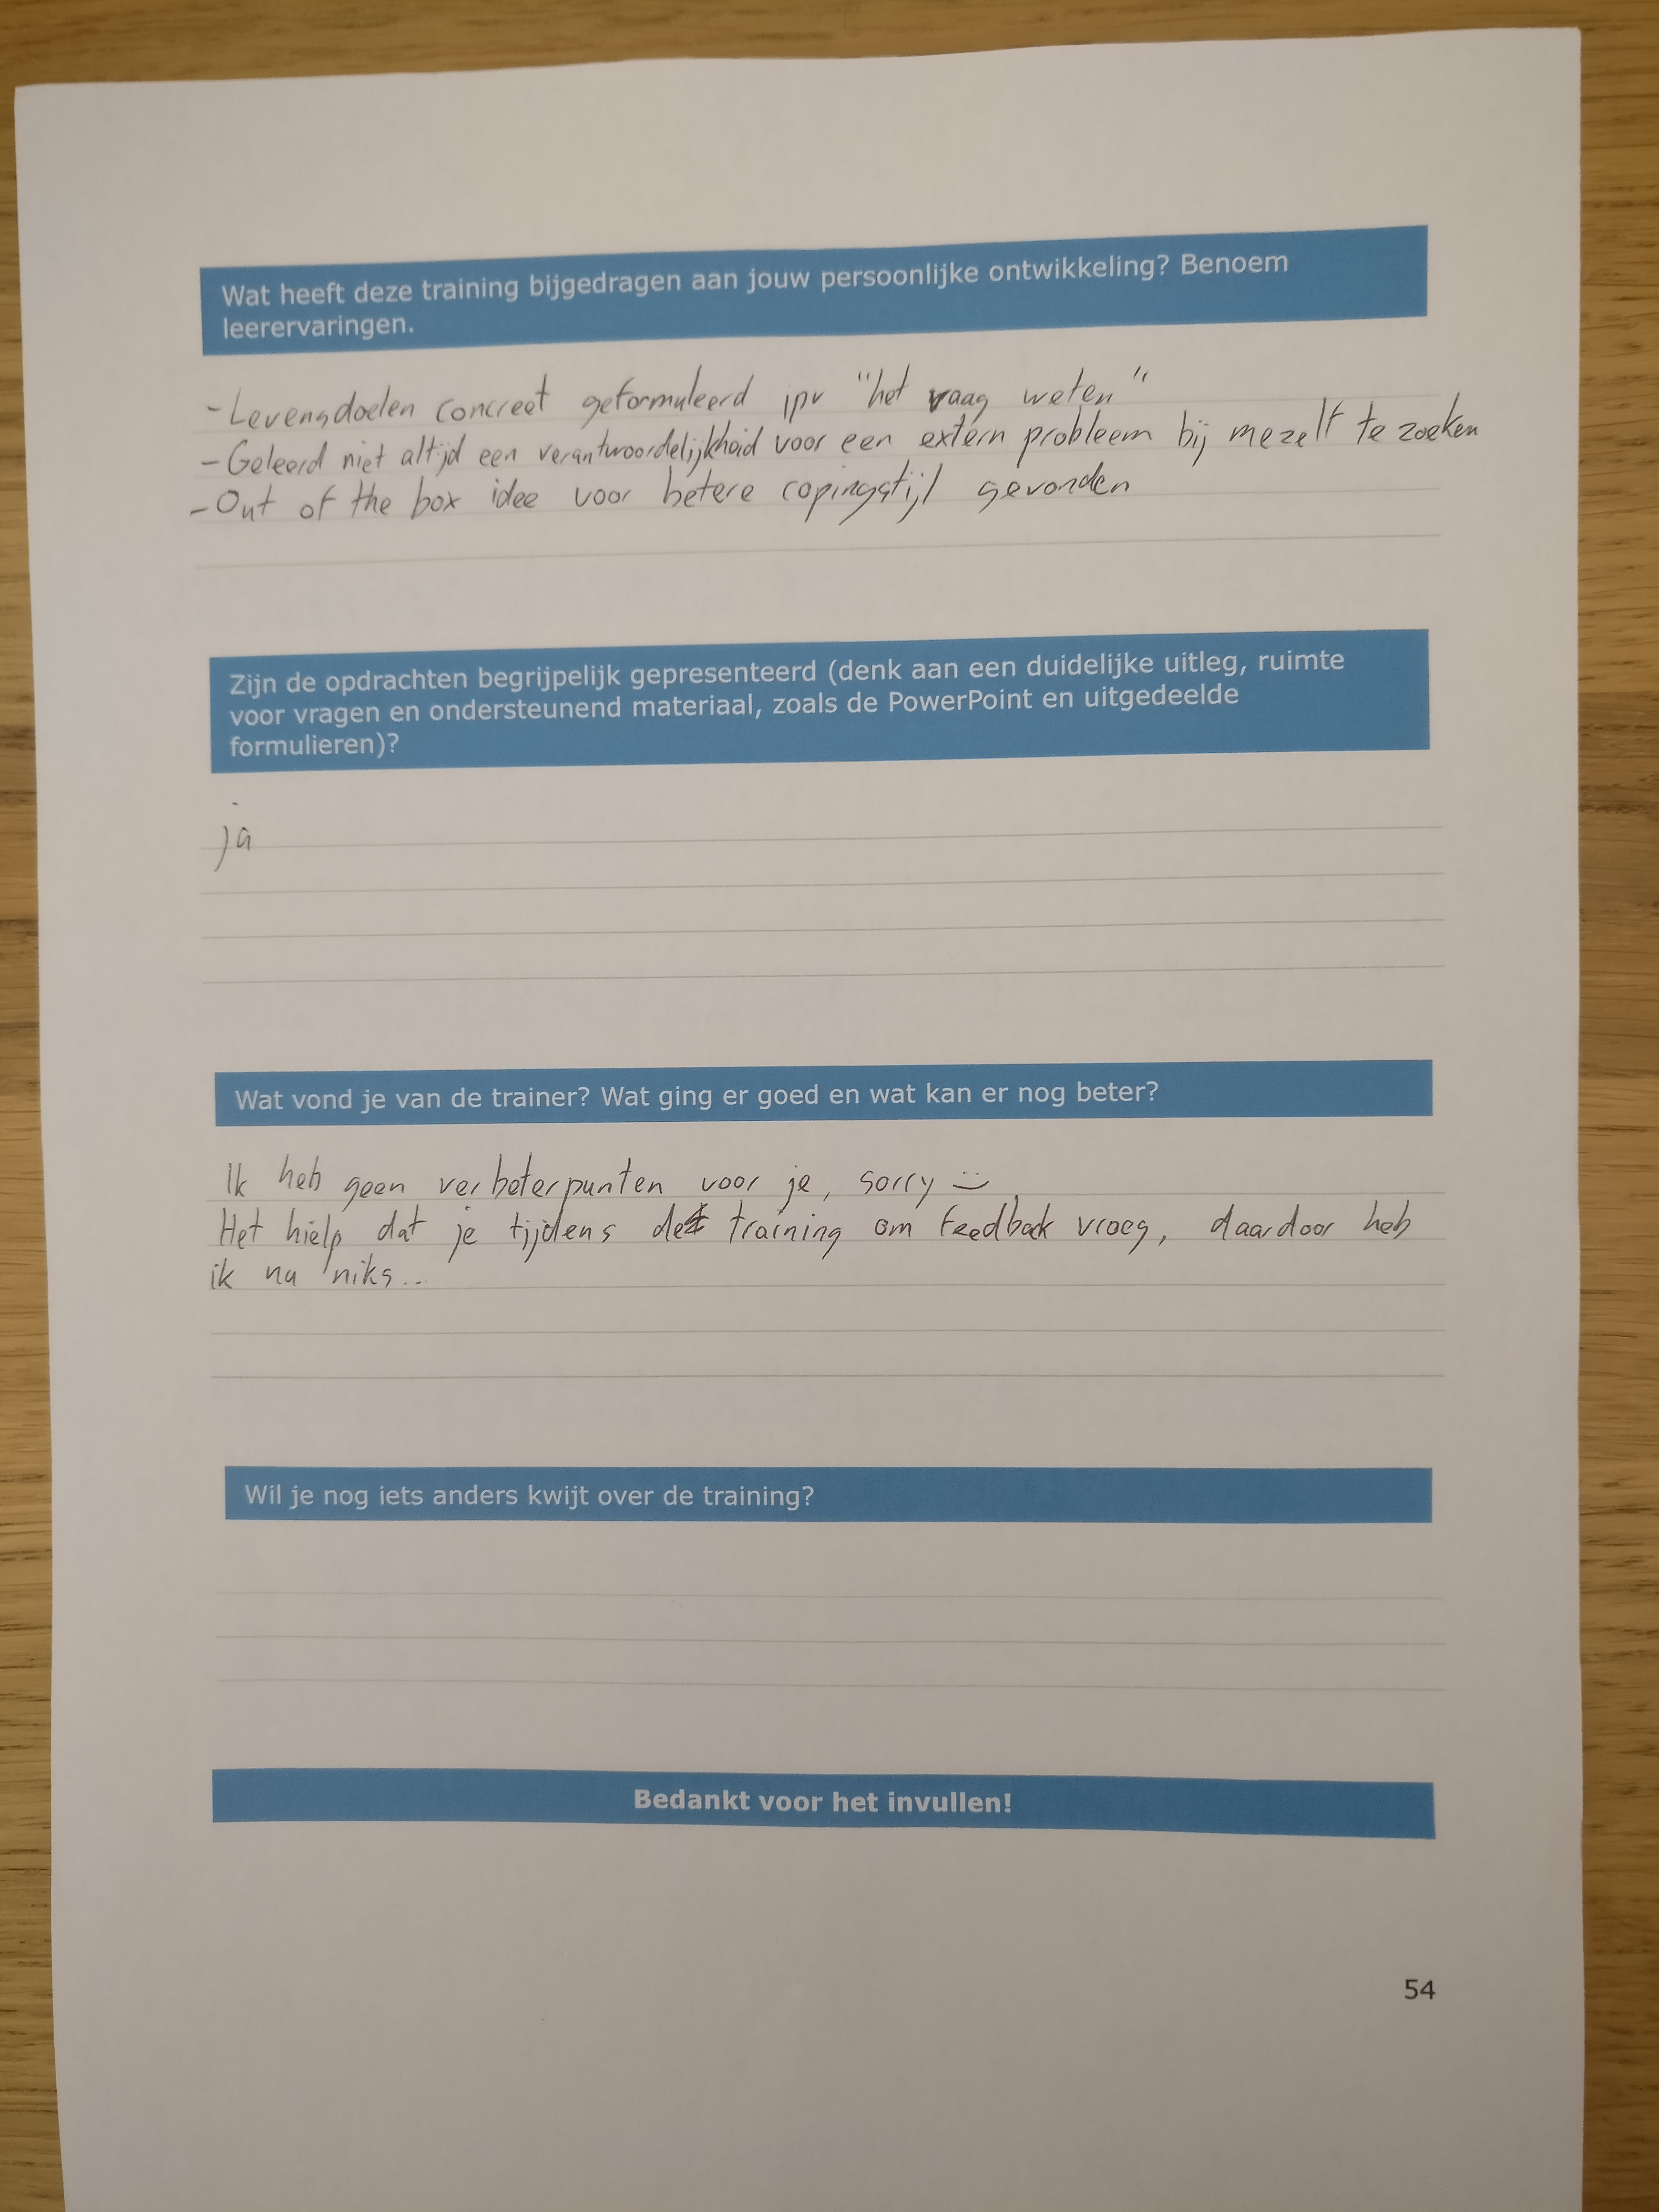 Wat heeft deze training bijgedragen aan jouw persoonlijke ontwikkeling? Benoem
leerervaringen.
- Levensdoelen concreet geformuleerd ipv "het vaag weten"
- Geleerd niet altijd een verantwoordelijkheid voor een extern probleem bij mezelf te zoeken
- Out of the box idee voor betere copingstijl gevonden
Zijn de opdrachten begrijpelijk gepresenteerd (denk aan een duidelijke uitleg, ruimte
voor vragen en ondersteunend materiaal, zoals de PowerPoint en uitgedeelde
formulieren)?
ja
Wat vond je van de trainer? Wat ging er goed en wat kan er nog beter?
Ik heb geen verbeterpunten voor je, sorry :)
Het hielp dat je tijdens de training om feedback vroeg, daardoor heb
ik nu niks..
Wil je nog iets anders kwijt over de training?
Bedankt voor het invullen!
54